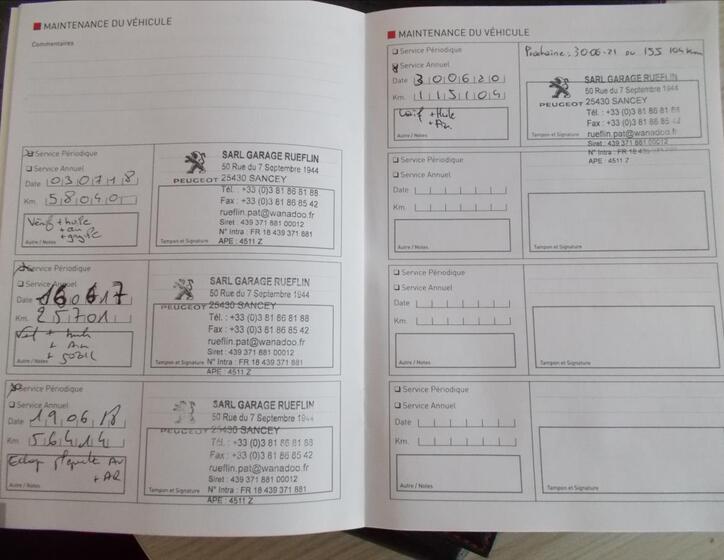 MAINTENANCE DU VÉHICULE
Commentaires
Service Périodique
Service Annuel
Date 030718
Km. 58040
+ hule
Autre / Notes
PEUGEOT
SARL GARAGE RUEFLIN
50 Rue du 7 Septembre 1944
25430 SANCEY
Tél. : +33 (0)3 81 86 81 88
Fax : +33 (0)3 81 86 85 42
rueflin.pat@wanadoo.fr
Siret : 439 371 881 00012
N° Intra : FR 18 439 371 881
Tampon et Signature
APE : 4511 Z
Service Périodique
Service Annuel
Date 160617
Km. 25701
Autre / Notes
PEUGEOT
SARL GARAGE RUEFLIN
50 Rue du 7 Septembre 1944
25430 SANCEY
Tél. : +33 (0)3 81 86 81 88
Fax : +33 (0)3 81 86 85 42
rueflin.pat@wanadoo.fr
Siret : 439 371 881 00012
N° Intra : FR 18 439 371 881
Tampon et Signature
APE : 4511 Z
Service Périodique
Service Annuel
Date 190618
Km. 56414
plaquette AV
+ AR
Autre / Notes
PEUGEOT
SARL GARAGE RUEFLIN
50 Rue du 7 Septembre 1944
25430 SANCEY
Tél. : +33 (0)3 81 86 81 88
Fax : +33 (0)3 81 86 85 42
rueflin.pat@wanadoo.fr
Siret : 439 371 881 00012
N° Intra : FR 18 439 371 881
Tampon et Signature
APE : 4511 Z
MAINTENANCE DU VÉHICULE
Service Périodique
Service Annuel
Date 300620
Km. 115104
+ Hule
Autre / Notes
Prochaine : 30-06-21 ou 135 104 km
PEUGEOT
SARL GARAGE RUEFLIN
50 Rue du 7 Septembre 1944
25430 SANCEY
Tél. : +33 (0)3 81 86 81 88
Fax : +33 (0)3 81 86 85 42
rueflin.pat@wanadoo.fr
Siret : 439 371 881 00012
N° Intra : FR 18 439 371 881
APE : 4511 Z
Service Périodique
Service Annuel
Date
Km.
Autre / Notes
Tampon et Signature
Service Périodique
Service Annuel
Date
Km.
Autre / Notes
Tampon et Signature
Service Périodique
Service Annuel
Date
Km.
Autre / Notes
Tampon et Signature